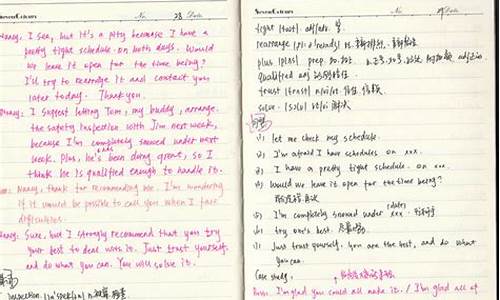 SevenColours No. 28 Date
Nancy, I see, but it's a pity because I have a
pretty tight schedule on both days. Would
we leave it open for the time being?
I'll try to rearrange it and contact you
later today. Thank you.
I suggest letting Tom, my buddy, arrange
the safety inspection with Jim next week,
because I'm completely snowed under next
week. Plus, he's been doing great, so I
think he is qualified enough to handle it.
Nancy, thank for recommending me. I'm wondering
if it would be possible to call you when I face
difficulties.
Sure, but I strongly recommend that you try
your best to deal with it. Just trust yourself
and do what you can. You will solve it.
inspection
SevenColours No. Date
tight [taɪt] adj/adv. 紧
rearrange
plus [plʌs] prep.
qualified adj.
trust [trʌst] n/vi/vt 信任,信赖
solve. vt/vi 解决
let me check my schedule.
I'm afraid I have schedules on xxx.
I have a pretty tight schedule. on xxx.
Would we leave it open for the time being?
I'm completely snowed under xxx.
(date)
try one's best.
Just trust yourself. you are the best, and do what
you can.
Case study.
Boss: I'm glad you could all make it. / I'm glad all of